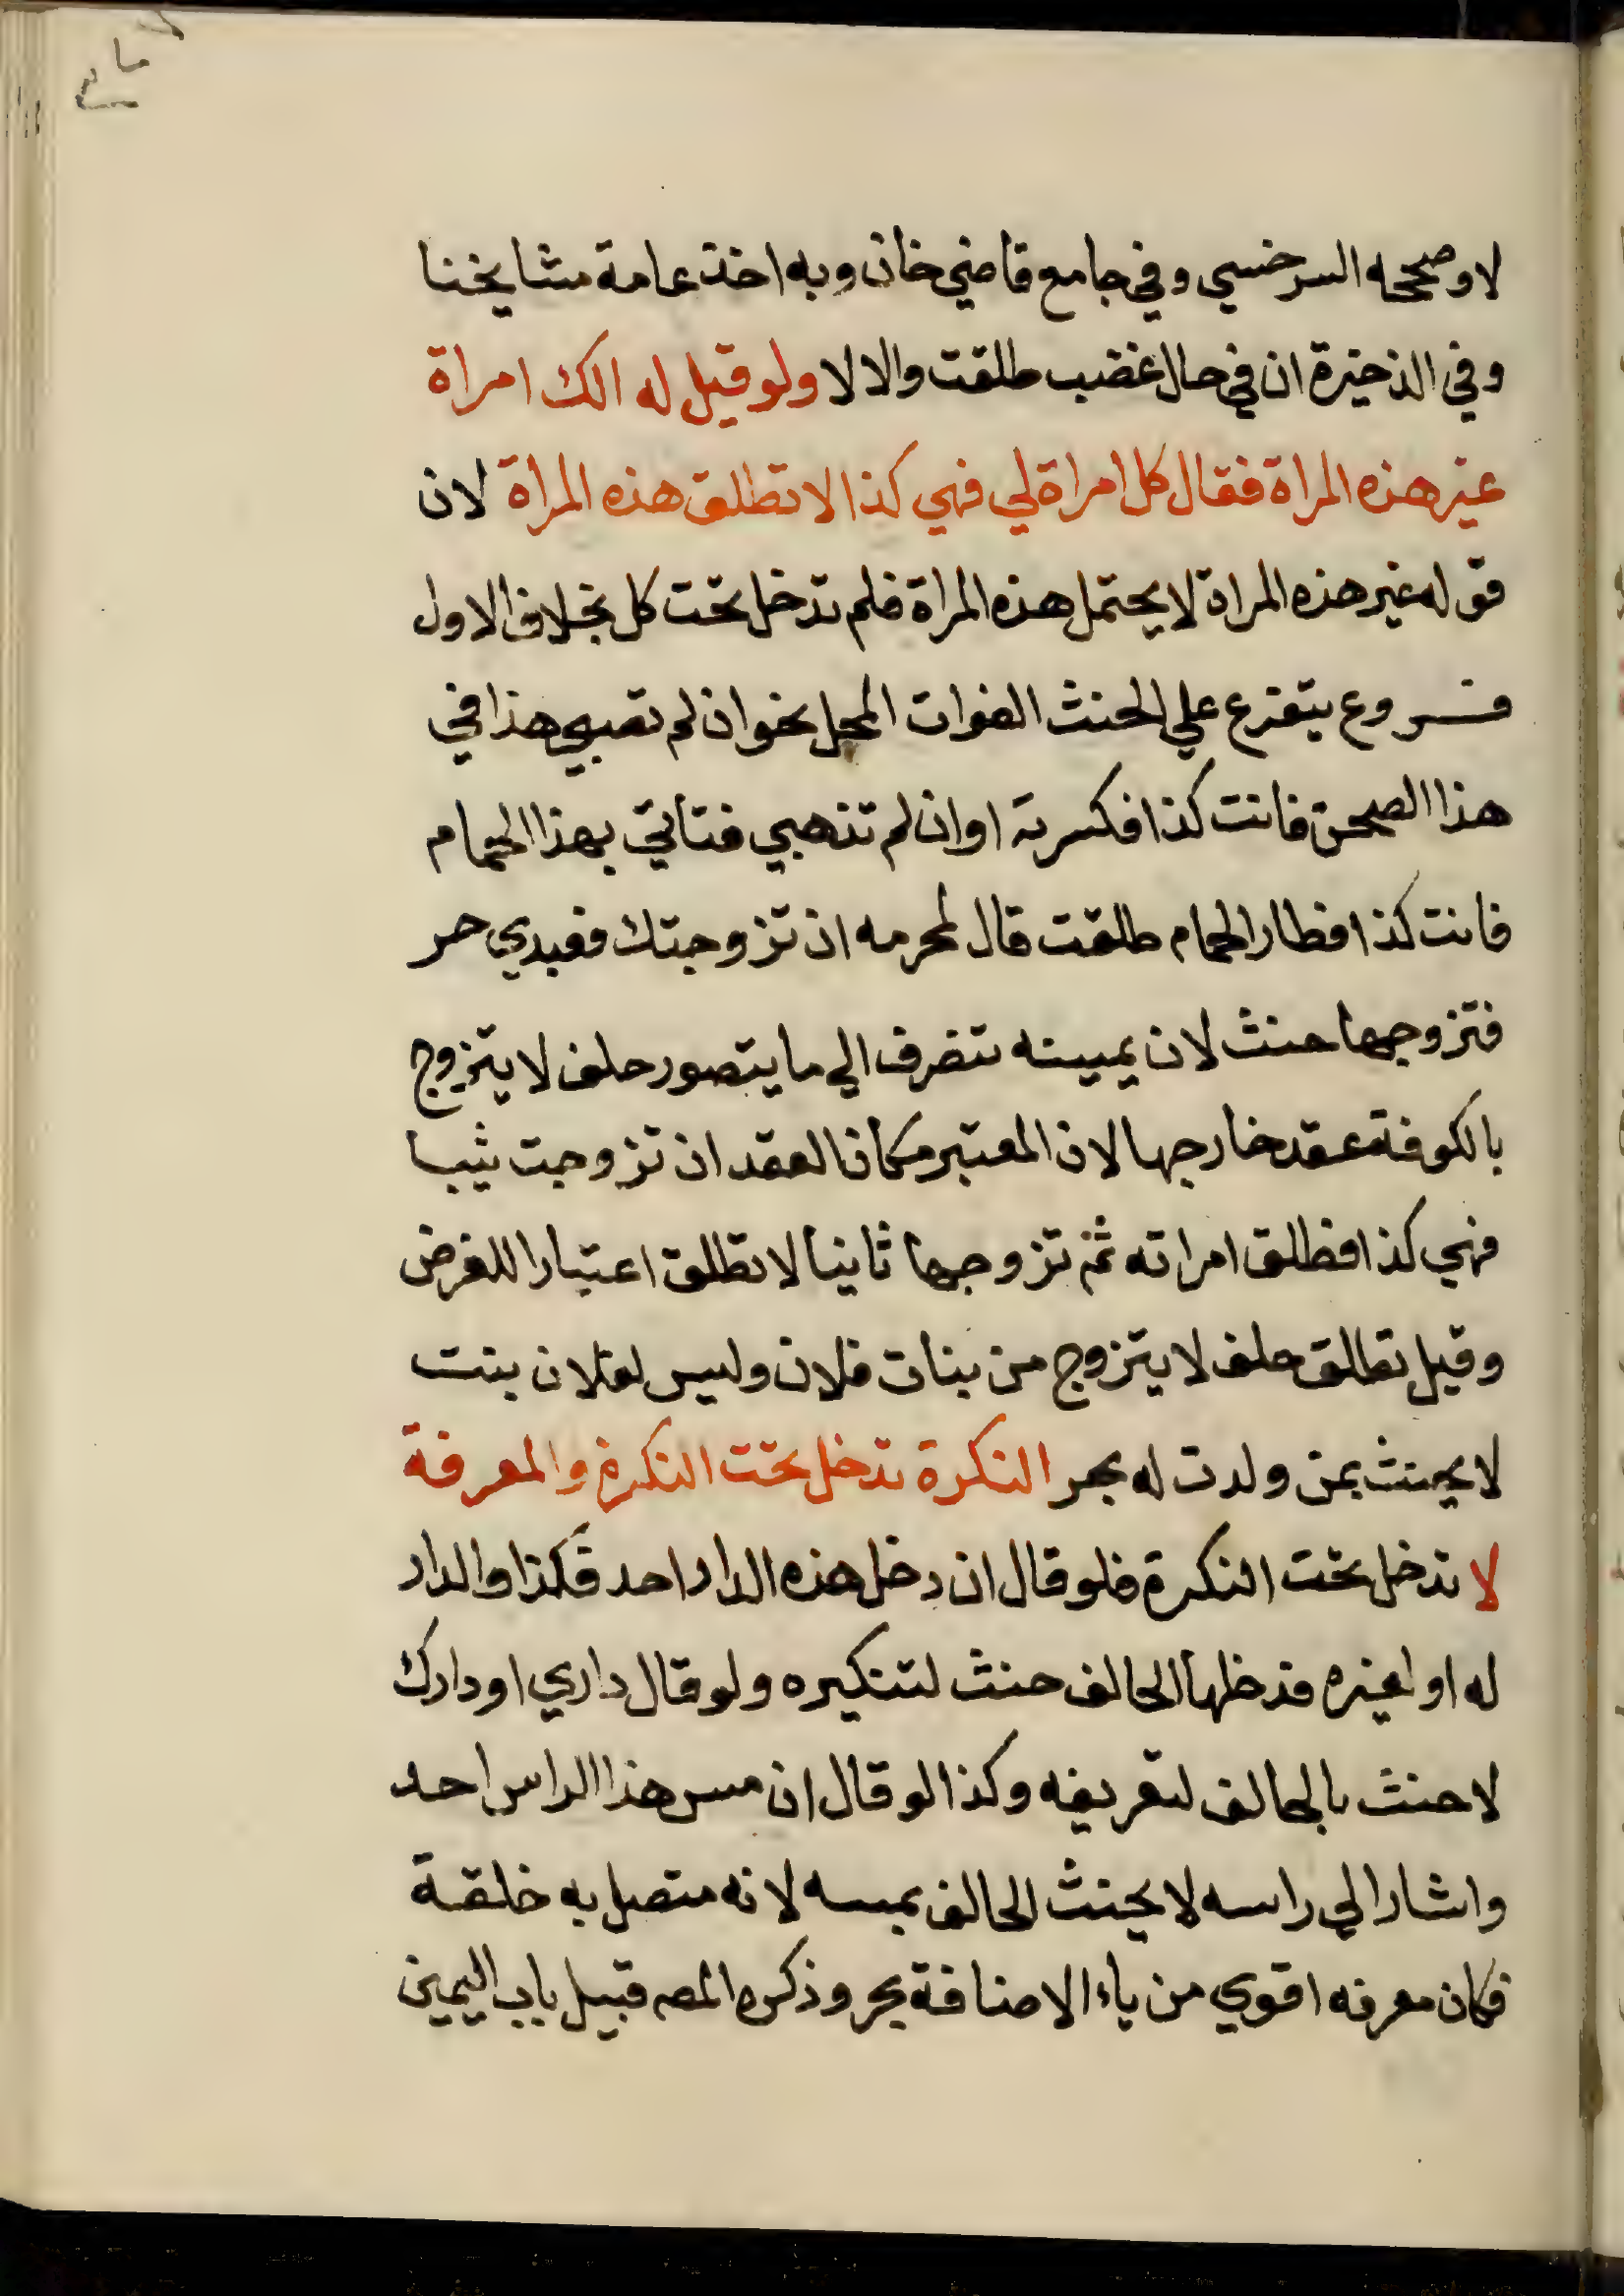 لا وصححه السرخسي وفي جامع قاضي خان وبه اخذ عامة مشايخنا
وفي الذخيرة ان في حال غضب طلقت والا لا ولو قيل له الك امراة
غير هذه المراة فقال كل امراة لي فهي كذا لا تطلق هذه المراة لان
قوله غير هذه المراة لا يحتمل هذه المراة فلم تدخل تحت كل بخلاف الاول
فروع يتفرع علي الحنث الفوات المحل نحو ان لم تصبي هذا في
هذا الصحن فانت كذا فكسرته او ان لم تذهبي فتاتي بهذا الحمام
فانت كذا فطار الحمام طلقت قال لمحرمه ان تزوجتك فعبدي حر
فتزوجها حنث لان يمينه تنصرف الي ما يتصور حلف لا يتزوج
بالكوفة عقد خارجها لان المعتبر مكان العقد ان تزوجت ثيبا
فهي كذا فطلق امراته ثم تزوجها ثانيا لا تطلق اعتبارا للغرض
وقيل تطلق حلف لا يتزوج من بنات فلان وليس لفلان بنت
لا يحنث بمن ولدت له بحر النكرة تدخل تحت النكرة والمعرفة
لا تدخل تحت النكرة فلو قال ان دخل هذه الدار احد فكذا والدار
له او لغيره فدخلها الحالف حنث لتنكيره ولو قال داري او دارك
لا حنث بالحالف لتعريفه وكذا لو قال ان مس هذا الراس احد
واشار الي راسه لا يحنث الحالف بمسه لانه متصل به خلقة
فكان معرفه اقوي من ياء الاضافة بحر وذكره المصه قبيل باب اليمين